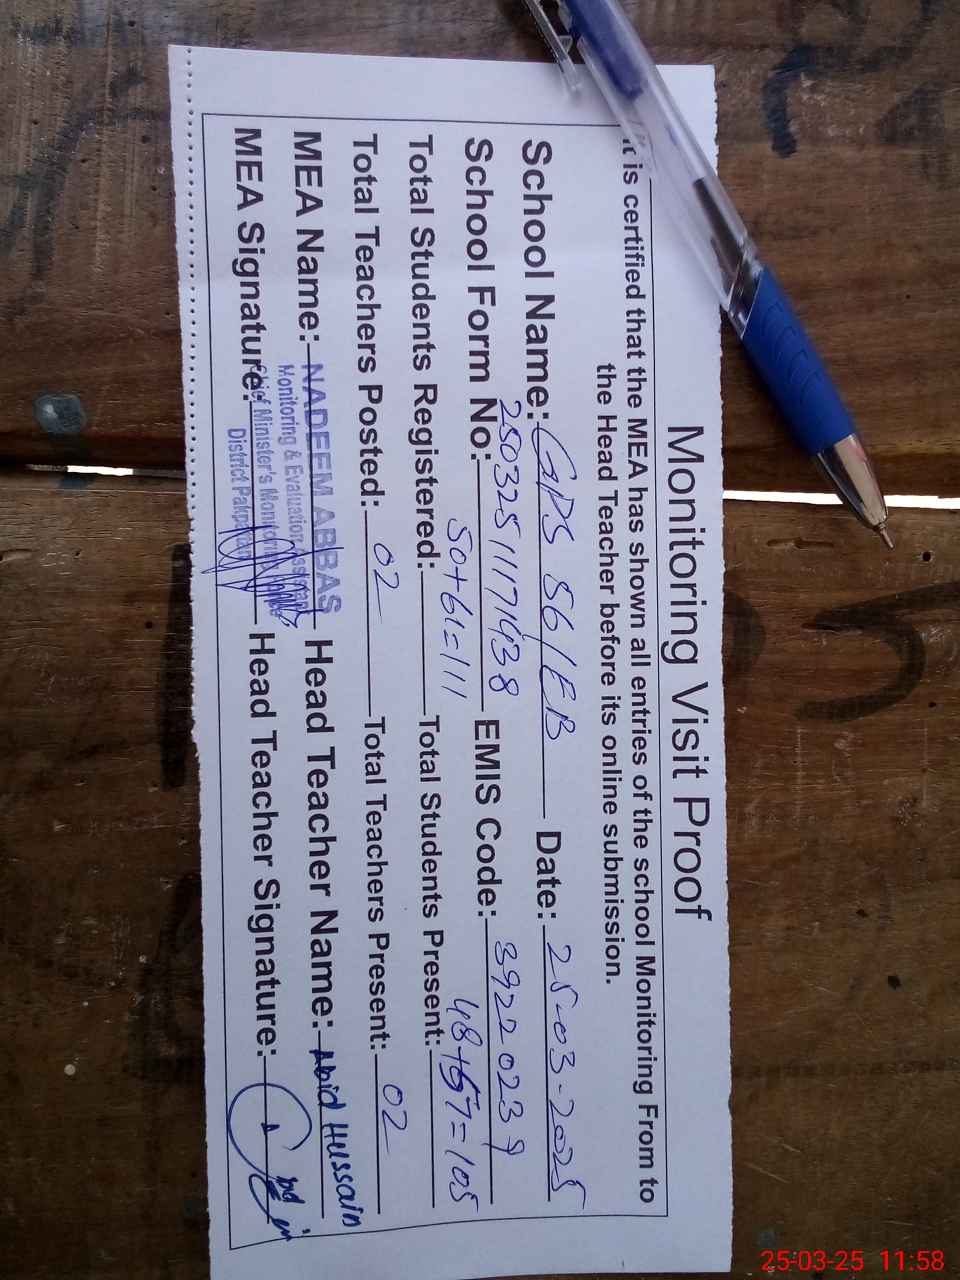 Monitoring Visit Proof
It is certified that the MEA has shown all entries of the school Monitoring From to
the Head Teacher before its online submission.
School Name: GPS 86/EB Date: 25-03-2025
School Form No: 25032511171438 EMIS Code: 39220239
Total Students Registered: 50+61=111 Total Students Present: 48+57=105
Total Teachers Posted: 02 Total Teachers Present: 02
MEA Name: NADEEM ABBAS Head Teacher Name: Abid Hussain
Monitoring & Evaluation Assistant
MEA Signature: Head Teacher Signature:
Chief Minister's Monitoring
District Pakpattan
25-03-25 11:58